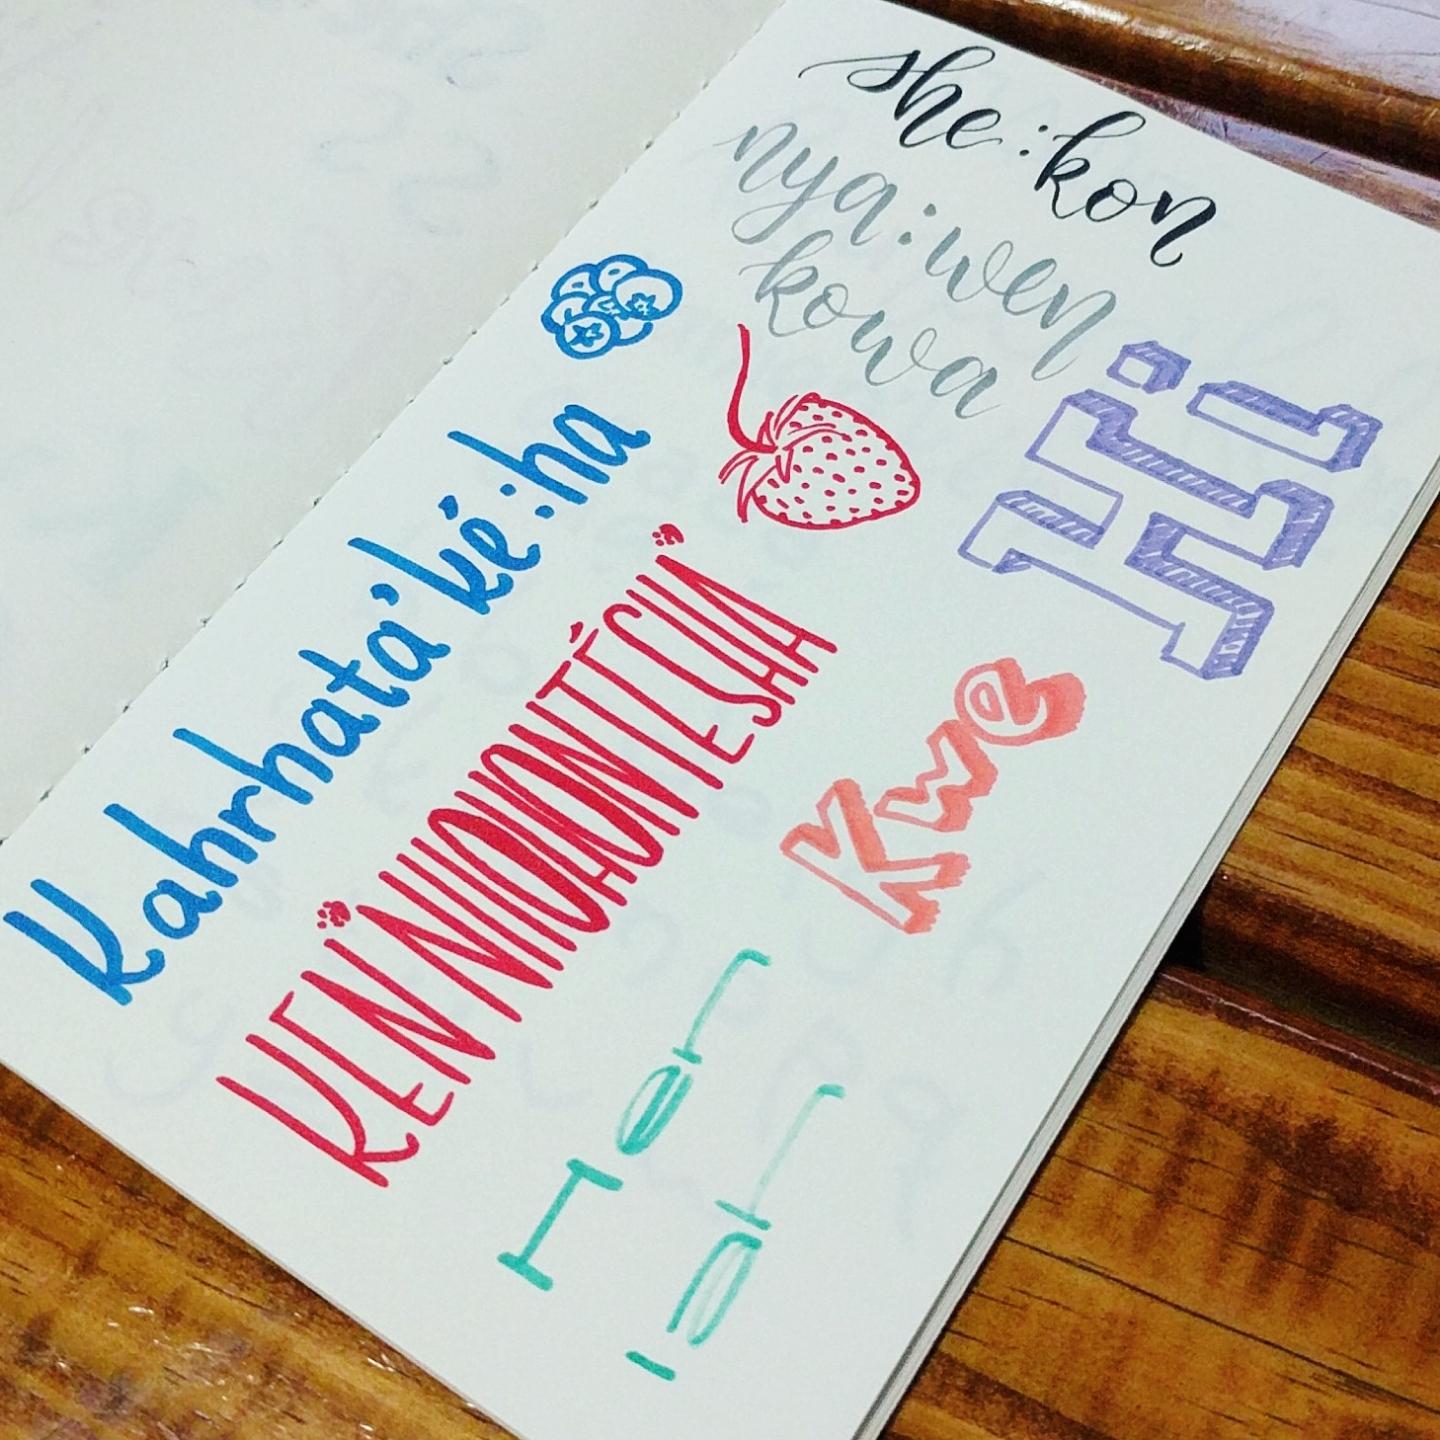 she:kon
nya:wen
kowa
Hi
Kahrhata'ké:ha
KEN'NIIOHONTÉSHA
Kwe